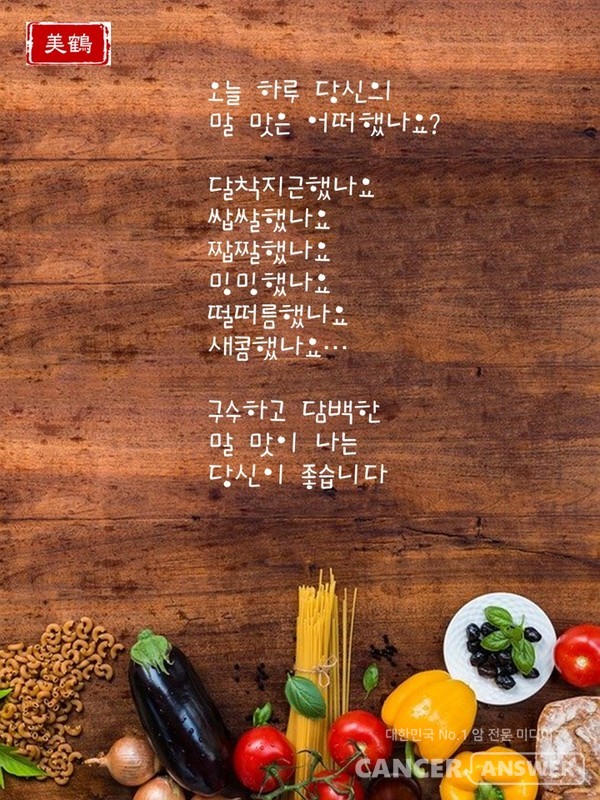 美鶴
오늘 하루 당신의
말 맛은 어떠했나요?
달착지근했나요
쌉쌀했나요
짭짤했나요
밍밍했나요
떨떠름했나요
새콤했나요…
구수하고 담백한
말 맛이 나는
당신이 좋습니다
대한민국 No.1 암 전문 미디어
CANCER ANSWER